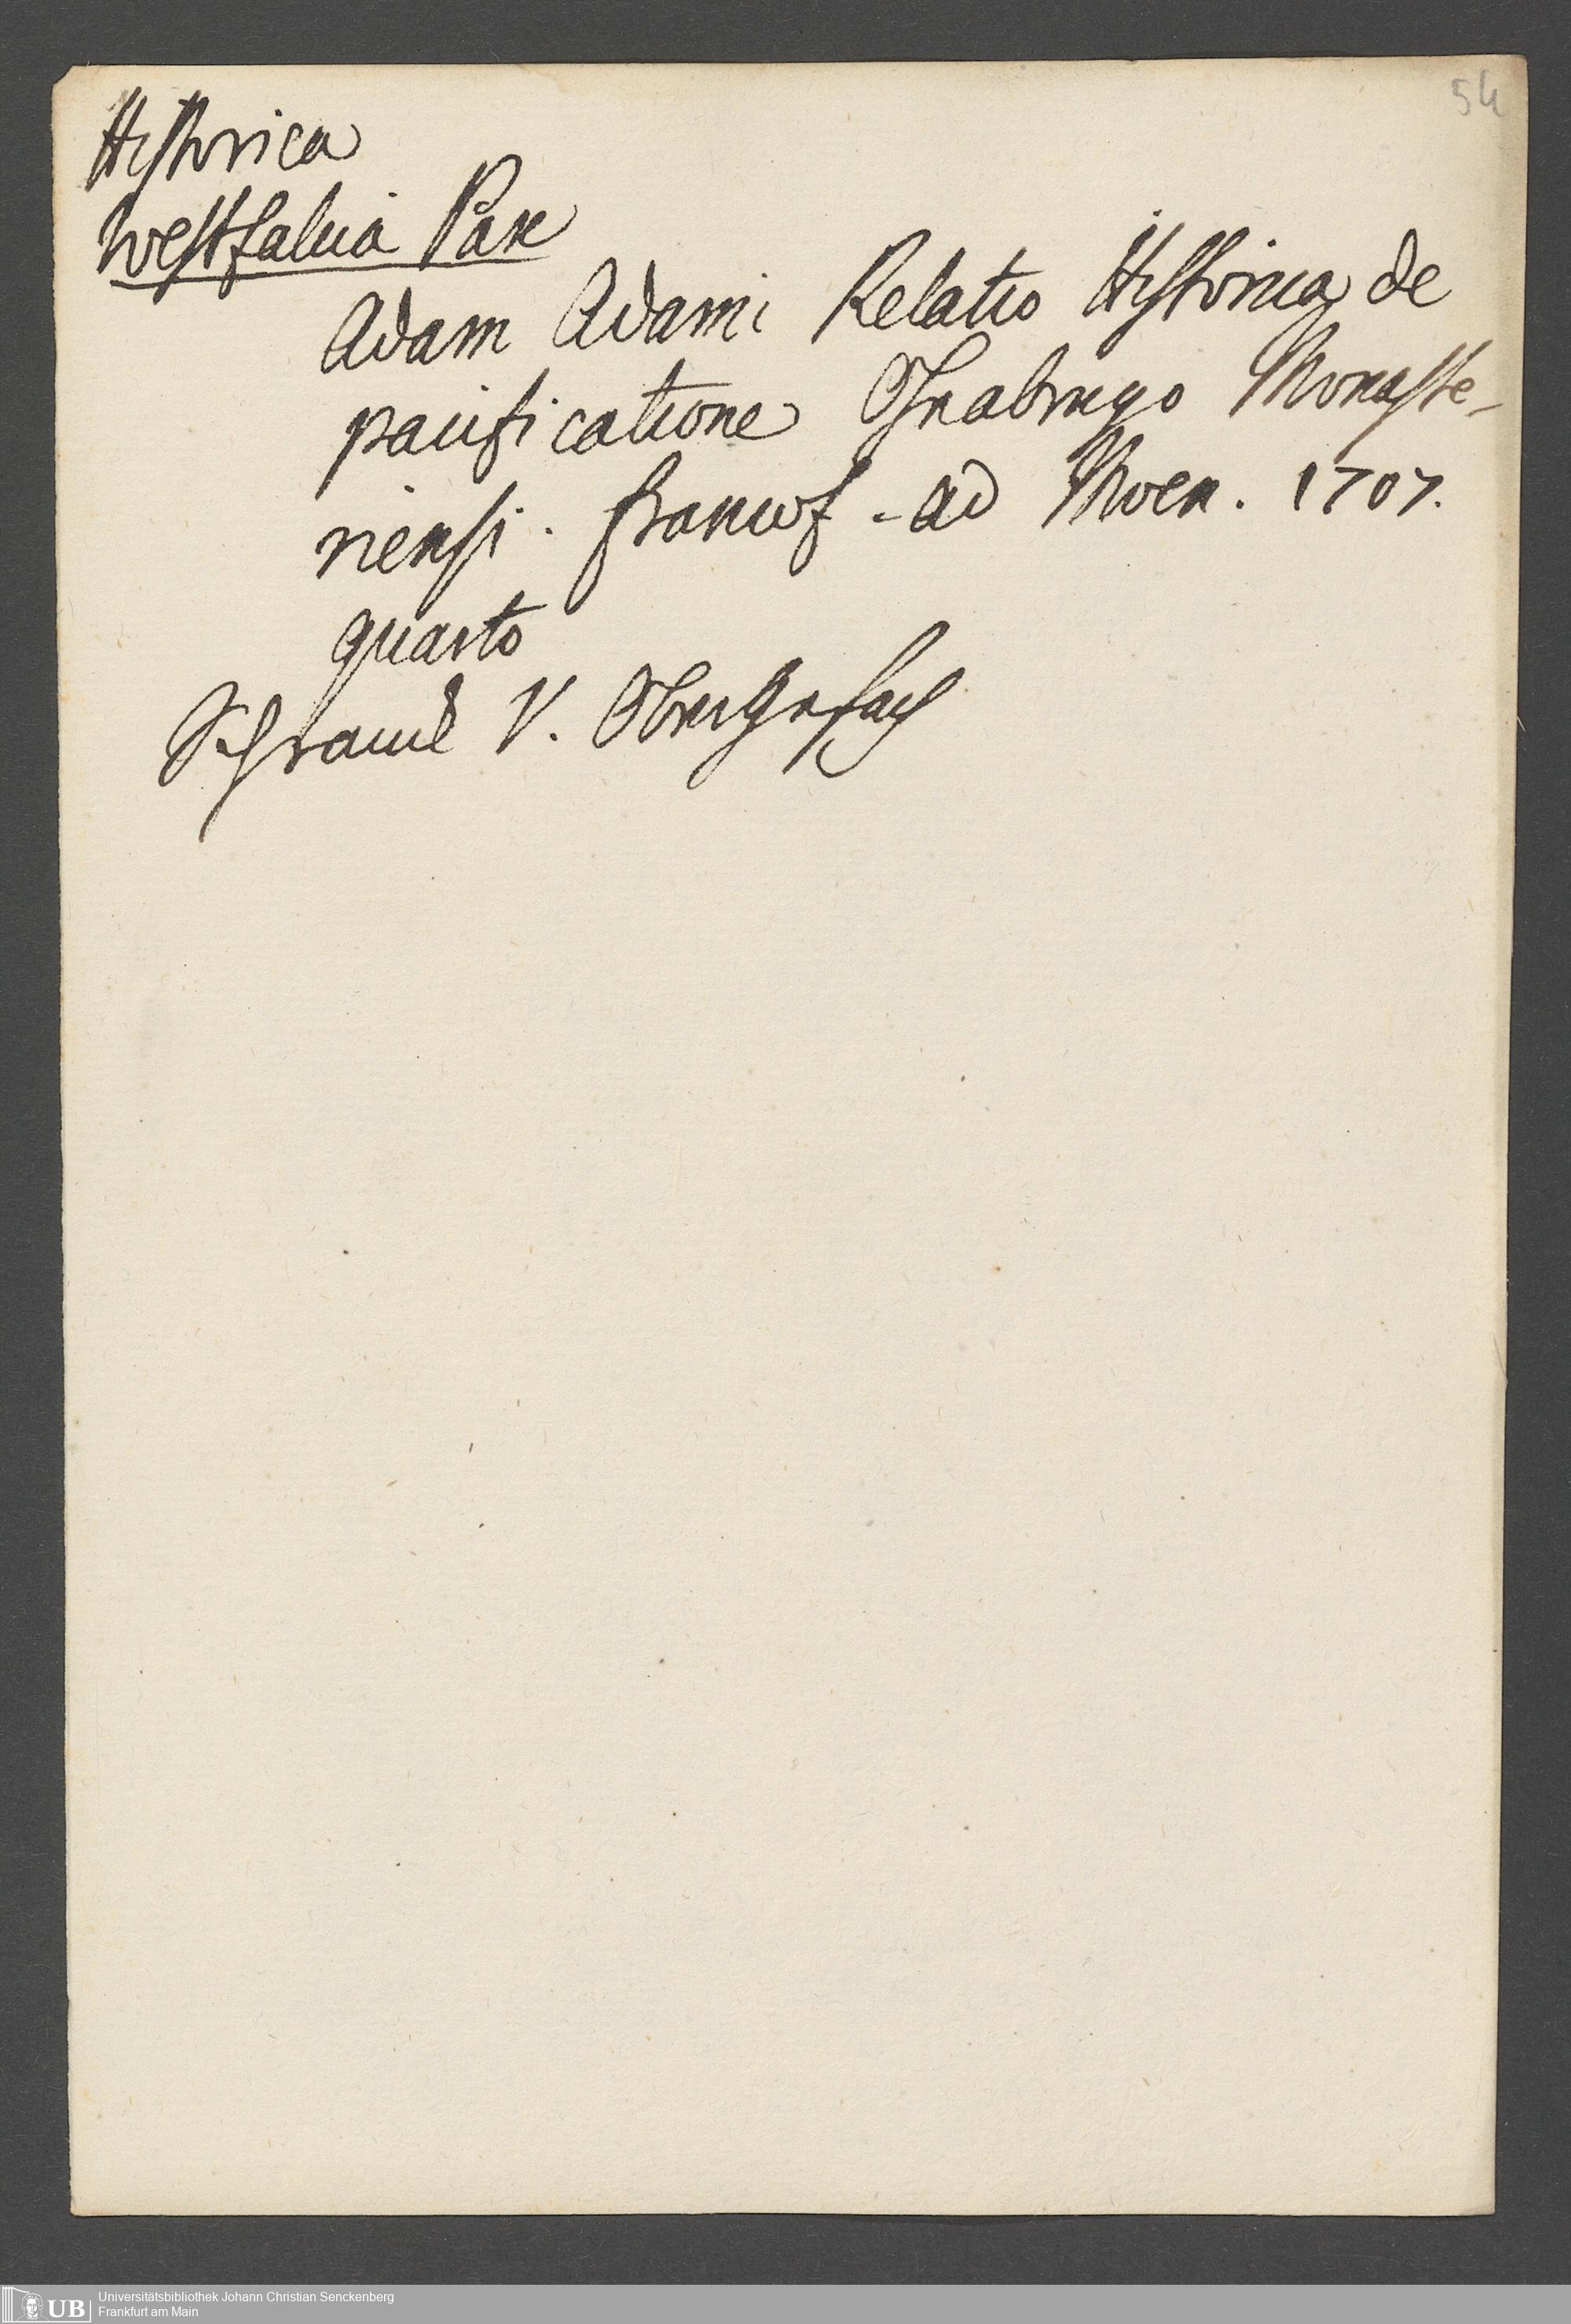 54
Historica
Westfalica Pax
Adam Adami Relatio Historica de
pacificatione Osnabrugo Monaste-
riensi. francof. ad Moen. 1707.
quarto
Schranck V. Obergefach
UB Universitätsbibliothek Johann Christian Senckenberg
Frankfurt am Main